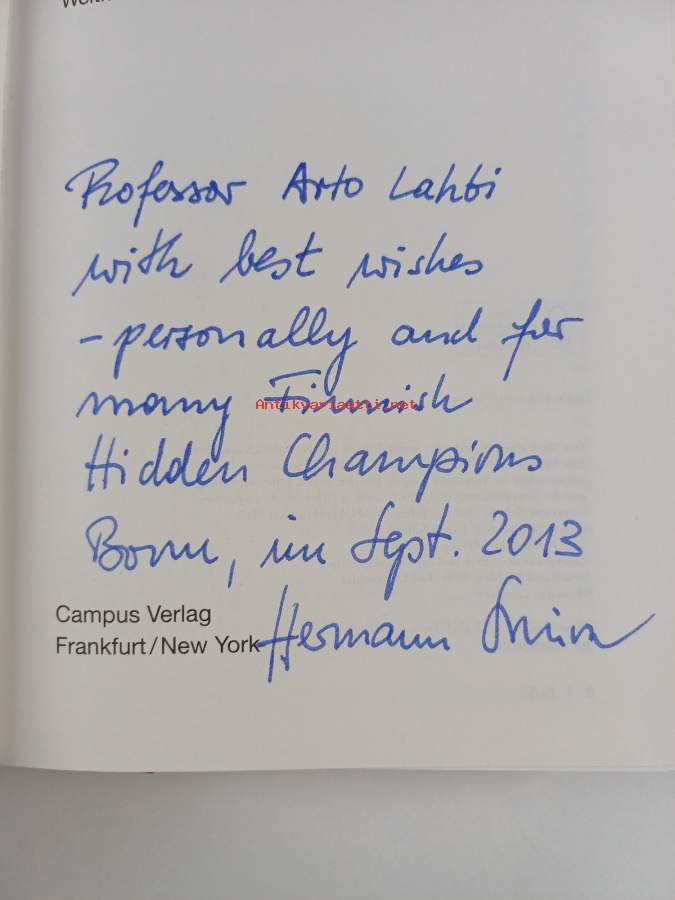 Professor Arto Lahti
with best wishes
- personally and for
many Finnish
Antikvariaatti.net
Hidden Champions
Bonn, im Sept. 2013
Campus Verlag
Frankfurt/New York
Hermann Simon